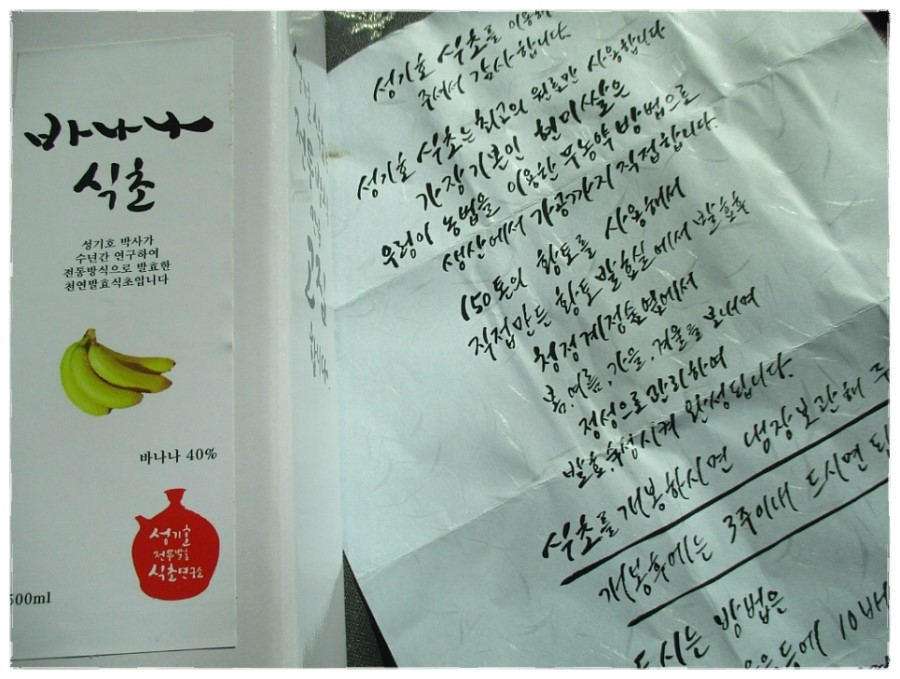 바나나
식초
성기호 박사가
수년간 연구하여
전통방식으로 발효한
천연발효식초입니다
바나나 40%
성기호
전통발효
식초연구소
500ml
성기호 식초를 이용해
주셔서 감사합니다.
성기호 식초는 최고의 원료만 사용합니다
가장 기본인 현미쌀은
우렁이 농법을 이용한 무농약 방법으로
생산에서 가공까지 직접합니다.
150톤의 황토를 사용해서
직접만든 황토발효실에서 발효후
청정계정숲옆에서
봄,여름,가을,겨울을 보내며
정성으로 관리하여
발효,숙성시켜 완성됩니다.
식초를 개봉하시면 냉장보관해 주
개봉후에는 3주이내 드시면 됩
드시는 방법은
10배